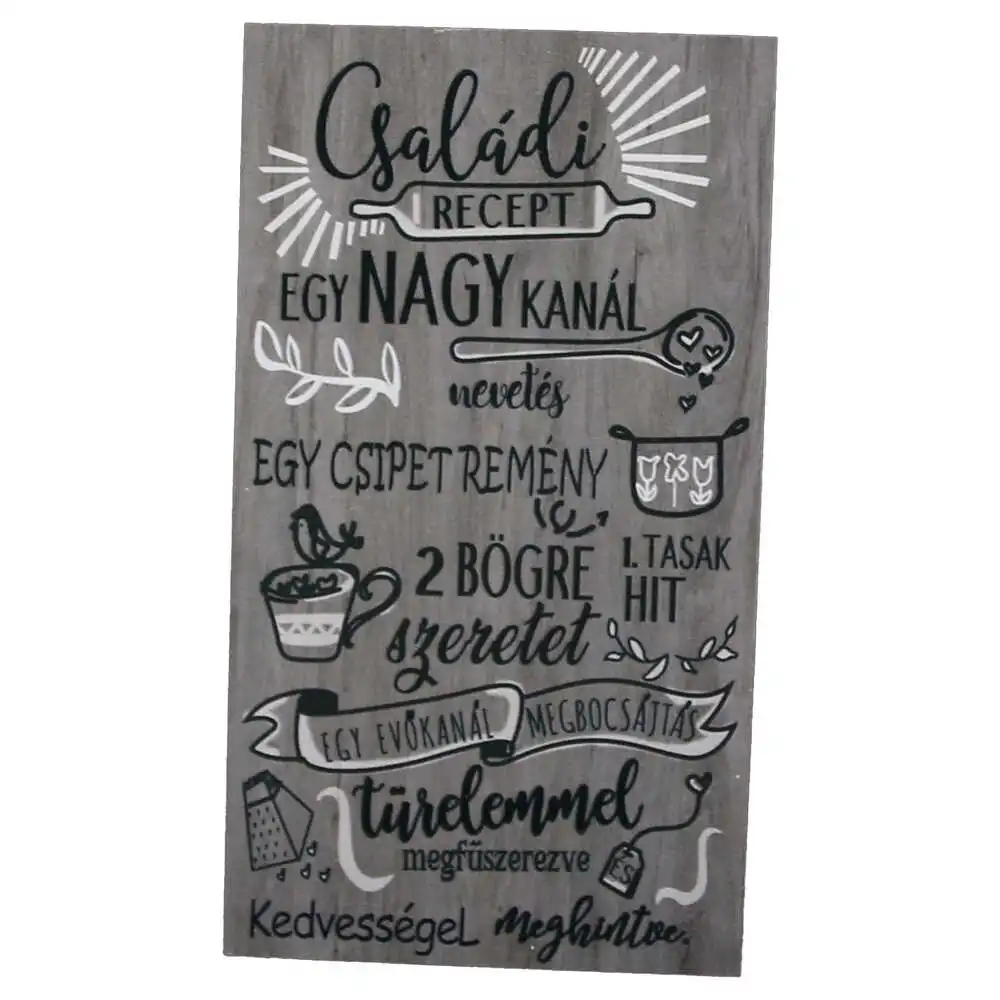 Családi
RECEPT
EGY NAGY KANÁL
nevetés
EGY CSIPET REMÉNY
2 BÖGRE
szeretet
1. TASAK
HIT
EGY EVŐKANÁL MEGBOCSÁJTÁS
türelemmel
megfűszerezve
ÉS
KedvességeL meghintve.